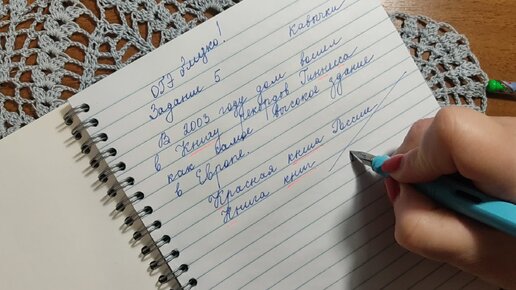 ОГЭ близко!
Задание 5 Кавычки
В 2003 году дом вошел
в Книгу рекордов Гиннеса
как самое высокое здание
в Европе.
Красная книга России
Книга книг